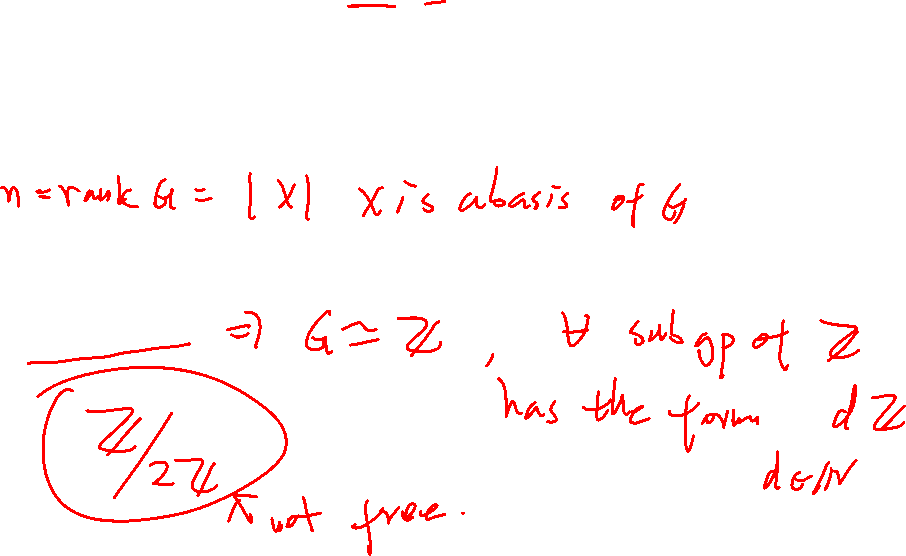 n = rank G = |X| X is a basis of G
⇒ G ≃ ℤ , ∀ subgp of ℤ
has the form dℤ
d∈ℕ
ℤ/2ℤ
not free.